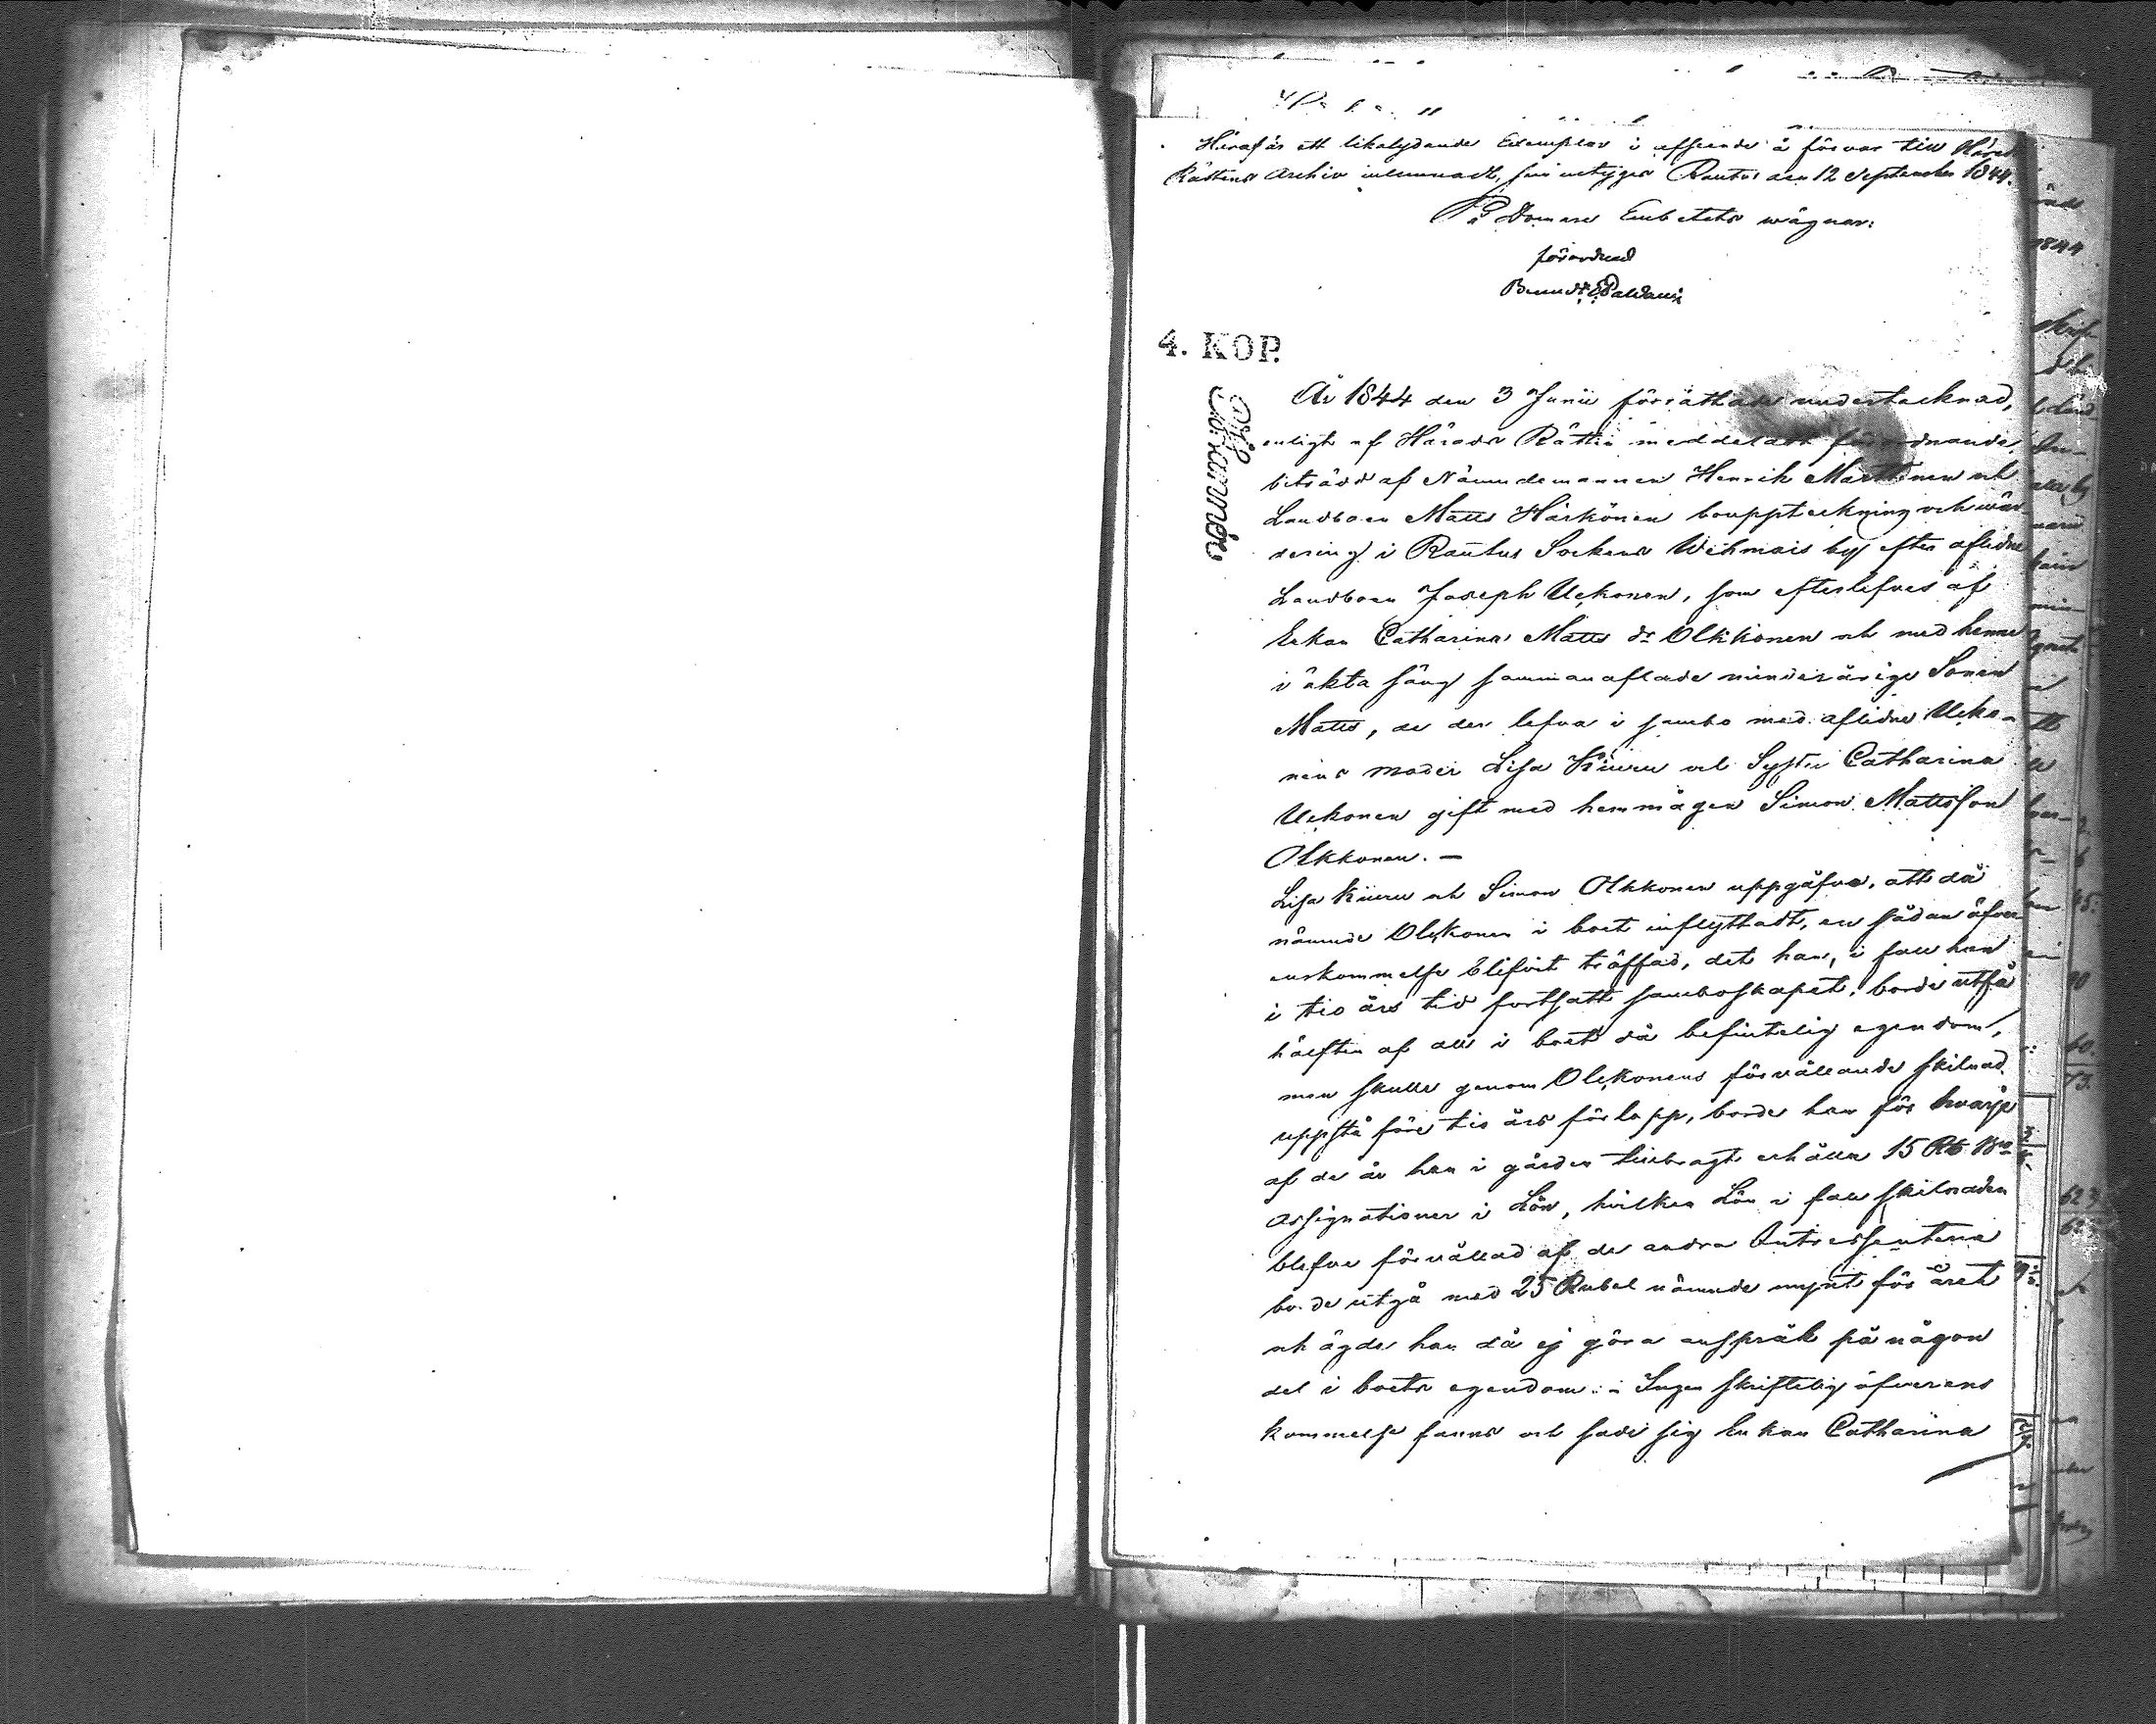 Häraf är ett likalydande Exemplar i afseende å förvar till Härads
Rättens Archiv inlemnadt, som intygas Rautus den 12 September 1844.
På Domare Embetets wägnar:
förordnad
4. KOP.
År 1844 den 3 Junii förrättade undertecknad,
enligt af Härads Rätten meddeladt förordnande,
biträdd af Nämndemannen Henrik Marttinen och
Landboen Matts Härkönen bouppteckning och wär
dering i Rautus Sockens Wehmais by efter aflidne
Landboen Joseph Uckonen, som efterlefves af
Enkan Catharina Matts dr Olkkonen och med henne
i äkta säng sammanaflade minderårige Sonen
Matts, de der lefva i sambo med aflidne Ucko-
nens moder Lisa Kiuru och Syster Catharina
Uckonen gift med hemmågen Simon Mattsson
Olkkonen. —
Lisa Kiuru och Simon Olkkonen uppgåfvo, att då
nämnde Olckonen i boet inflyttadt, en sådan öfver
enskommelse blifvit träffad, det han, i fall han
i tio års tid fortsatt samboskapet, borde utfå
hälften af all i boet då befintelig egendom,
men skulle genom Olckonens förvållande skilnad
uppstå före tio års förlopp, borde han för hvarje
af de år han i gården tillbragt erhålla 15 Rub Bco
Assignationer i Lön, hvilken Lön i fall skilnaden
blefve förvållad af de andra Intressenterne
borde utgå med 25 Rubel nämnde mynt för året
och ägde han då ej göra anspråk på någon
del i boets egendom. - Ingen skriftelig öfverens
kommelse fanns och sade sig Enkan Catharina